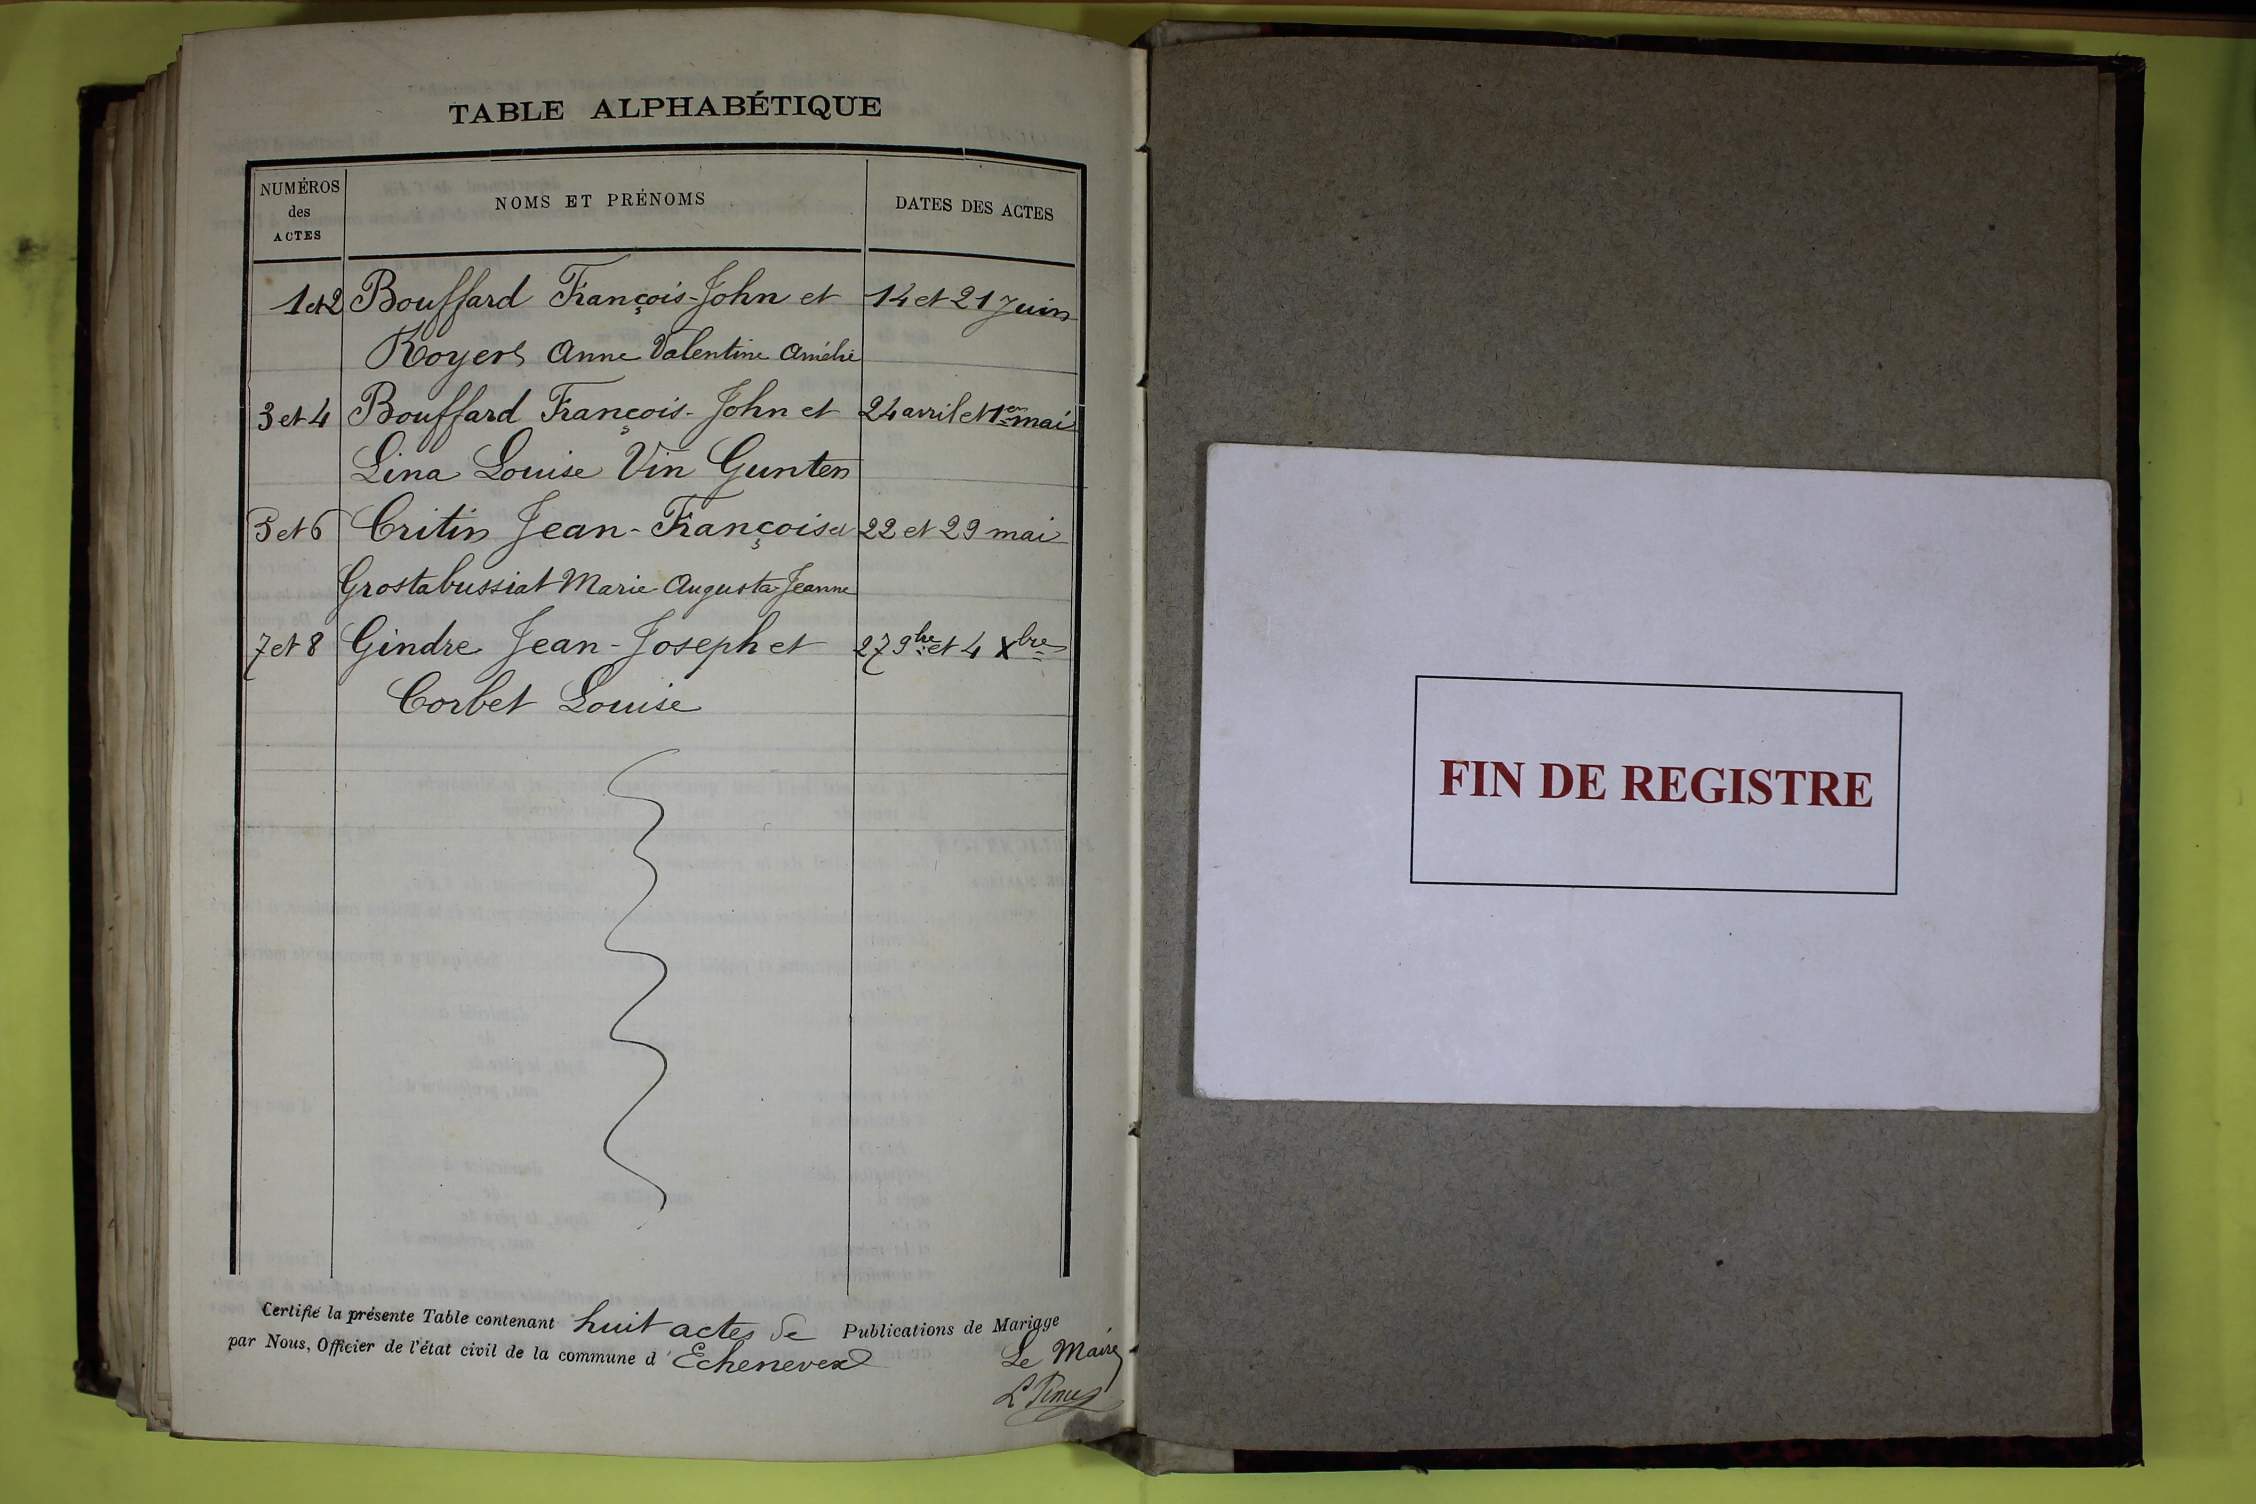 TABLE ALPHABÉTIQUE
NUMÉROS
des
ACTES
NOMS ET PRÉNOMS
DATES DES ACTES
1 et 2 Bouffard François-John et 14 et 21 Juin
Royer Anne Valentine Amélie
3 et 4 Bouffard François-John et 24 avril et 1er mai
Lina Louise Vin Gunten
5 et 6 Critin Jean-François et 22 et 29 mai
Grostabussiat Marie Augusta Jeanne
7 et 8 Gindre Jean-Joseph et 27 9bre et 4 Xbre
Corbet Louise
Certifié la présente Table contenant huit actes de Publications de Mariage
par Nous, Officier de l'état civil de la commune d'Echenevex
Le Maire
FIN DE REGISTRE